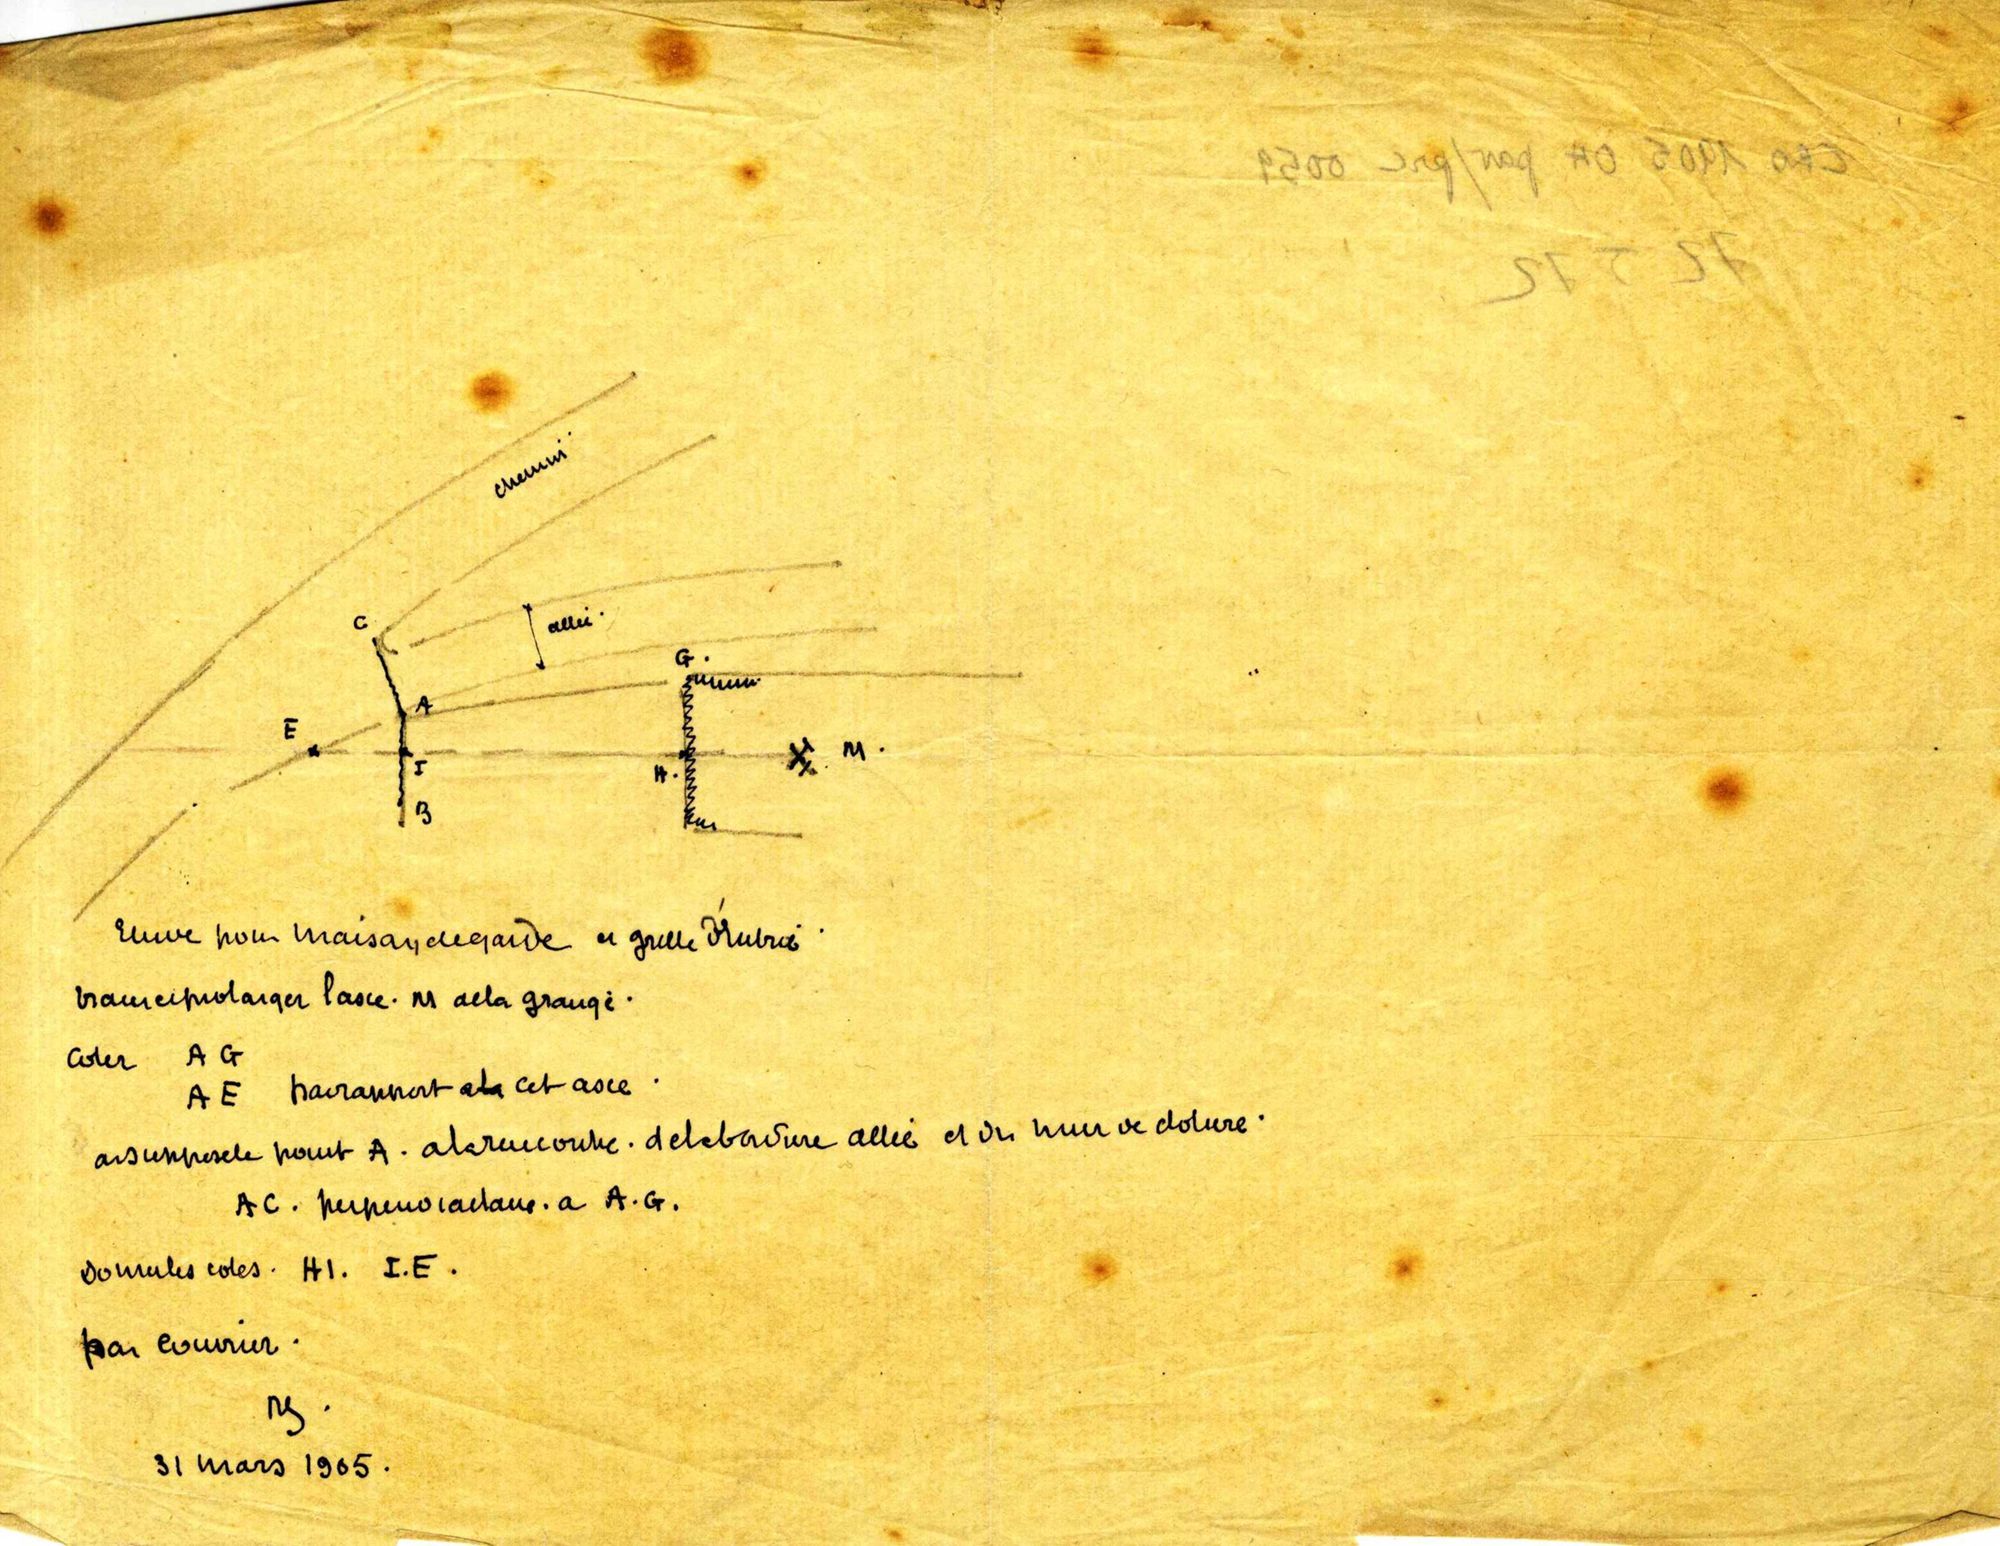 CRO 1905 04 par/prc 0059
72 5 12
chemin
C
allée.
G.
A
E
I
H.
M.
B
pour maison de garde et grille d'entrée
prolonger l'axe. M de la grange.
Coter A G
A E par rapport à la cet axe.
on suppose le point A. à la rencontre. de la bordure allée et du mur de cloture.
A C. perpendiculaire. a A.G.
Donner les cotes. HI. I.E.
par courrier.
31 mars 1905.